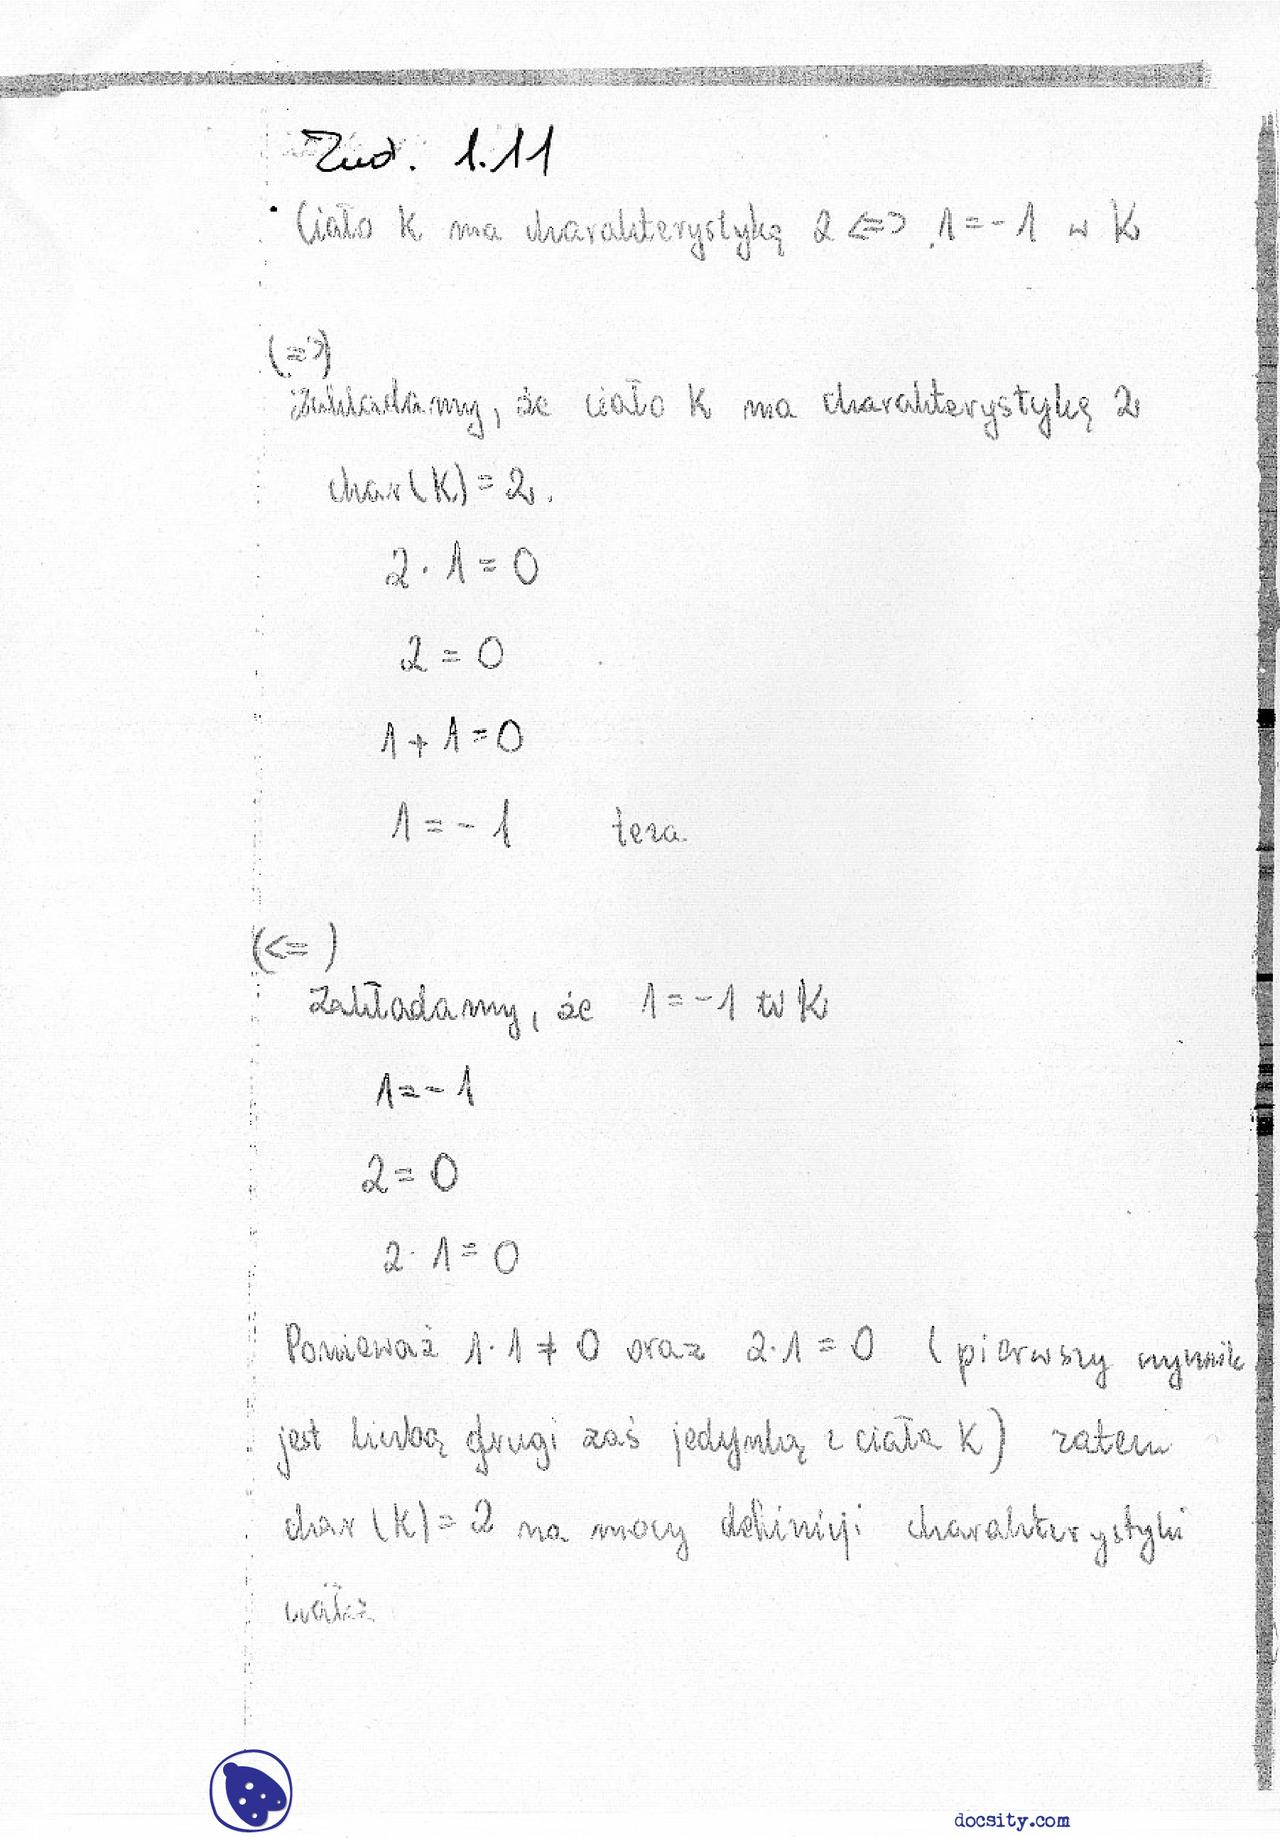 Zad. 1.11
Ciało K ma charakterystykę 2 <=> 1=-1 w K
(=>)
Zakładamy, że ciało K ma charakterystykę 2
char(K)=2.
2·1=0
2=0
1+1=0
1=-1 teza
(<=)
Zakładamy, że 1=-1 w K
1=-1
2=0
2·1=0
Ponieważ 1·1≠0 oraz 2·1=0 (pierwszy czynnik
jest liczbą drugi zaś jedynką z ciała K) zatem
char(K)=2 na mocy definicji charakterystyki
ciała
docsity.com